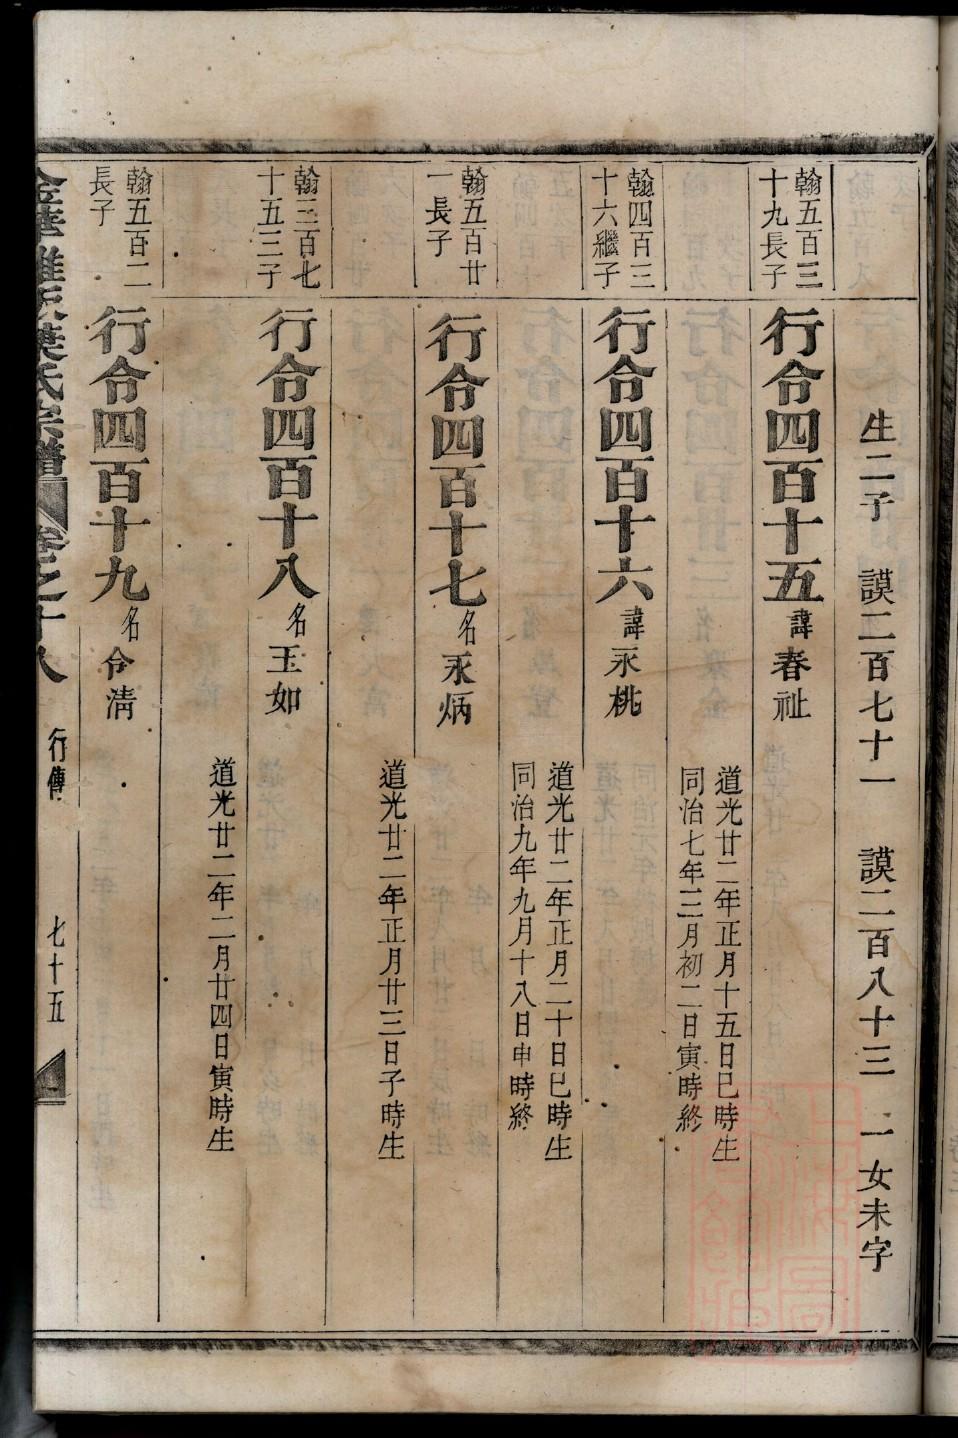 生二子 謨二百七十一 謨二百八十三 一女未字
翰五百三
十九長子
行令四百十五 諱春祉
道光廿二年正月十五日巳時生
同治七年三月初二日寅時終
翰四百三
十六繼子
行令四百十六 諱永桃
道光廿二年正月二十日巳時生
同治九年九月十八日申時終
翰五百廿
一長子
行令四百十七 名永炳
道光廿二年正月廿三日子時生
翰三百七
十五三子
行令四百十八 名玉如
道光廿二年二月廿四日寅時生
翰五百二
長子
行令四百十九 名令清
葉氏宗譜 卷之十八 行傳 七十五